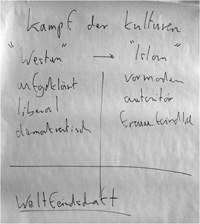 Kampf der Kulturen
"Westen" → "Islam"
aufgeklärt vormodern
liberal autoritär
demokratisch frauenfeindlich
Weltfeindschaft